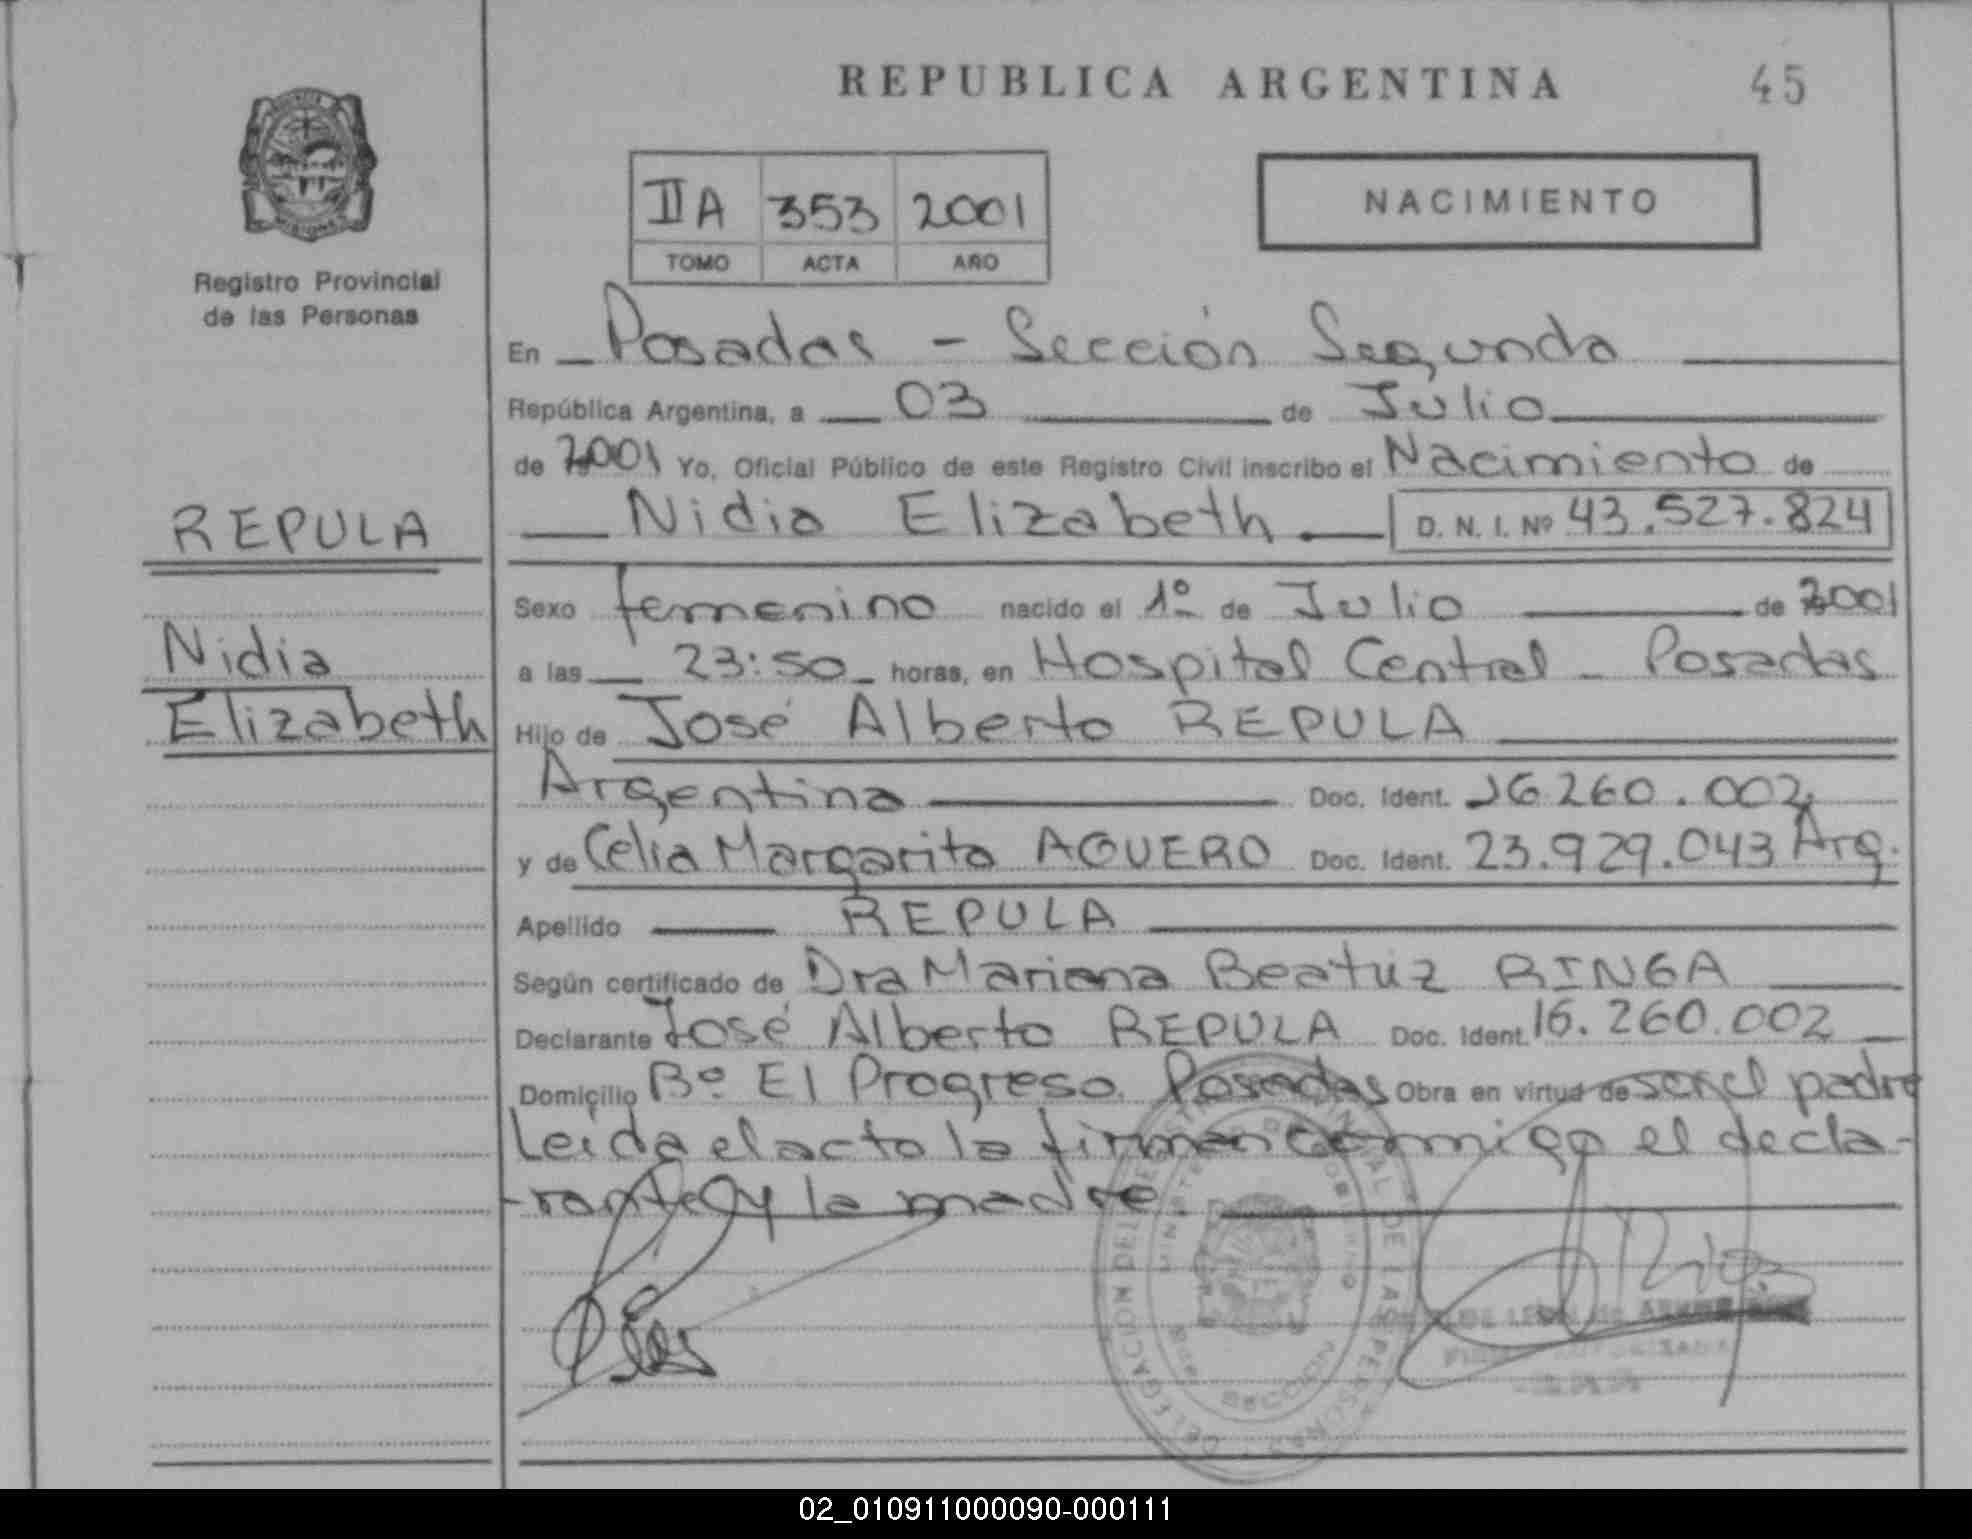 REPUBLICA ARGENTINA 45
IIA 353 2001
TOMO ACTA AÑO
NACIMIENTO
Registro Provincial
de las Personas
REPULA
Nidia
Elizabeth
En Posadas - Sección Segunda
República Argentina, a 03 de Julio
de 2001 Yo, Oficial Público de este Registro Civil inscribo el Nacimiento de
Nidia Elizabeth D. N. I. Nº 43.527.824
Sexo femenino nacido el 1º de Julio de 2001
a las 23:50 horas, en Hospital Central - Posadas
Hijo de José Alberto REPULA
Argentina Doc. Ident. 16.260.002
y de Celia Margarita AGUERO Doc. Ident. 23.929.043 Arg.
Apellido REPULA
Según certificado de Dra Mariana Beatriz RINGA
Declarante José Alberto REPULA Doc. Ident. 16.260.002
Domicilio Bº El Progreso. Posadas Obra en virtud de ser el padre
Leida el acto la firman conmigo el decla-
-rante y la madre
DELEGACION DEL REGISTRO PROVINCIAL DE LAS PERSONAS
MINISTERIO DE GOBIERNO
SECCION
02_010911000090-000111